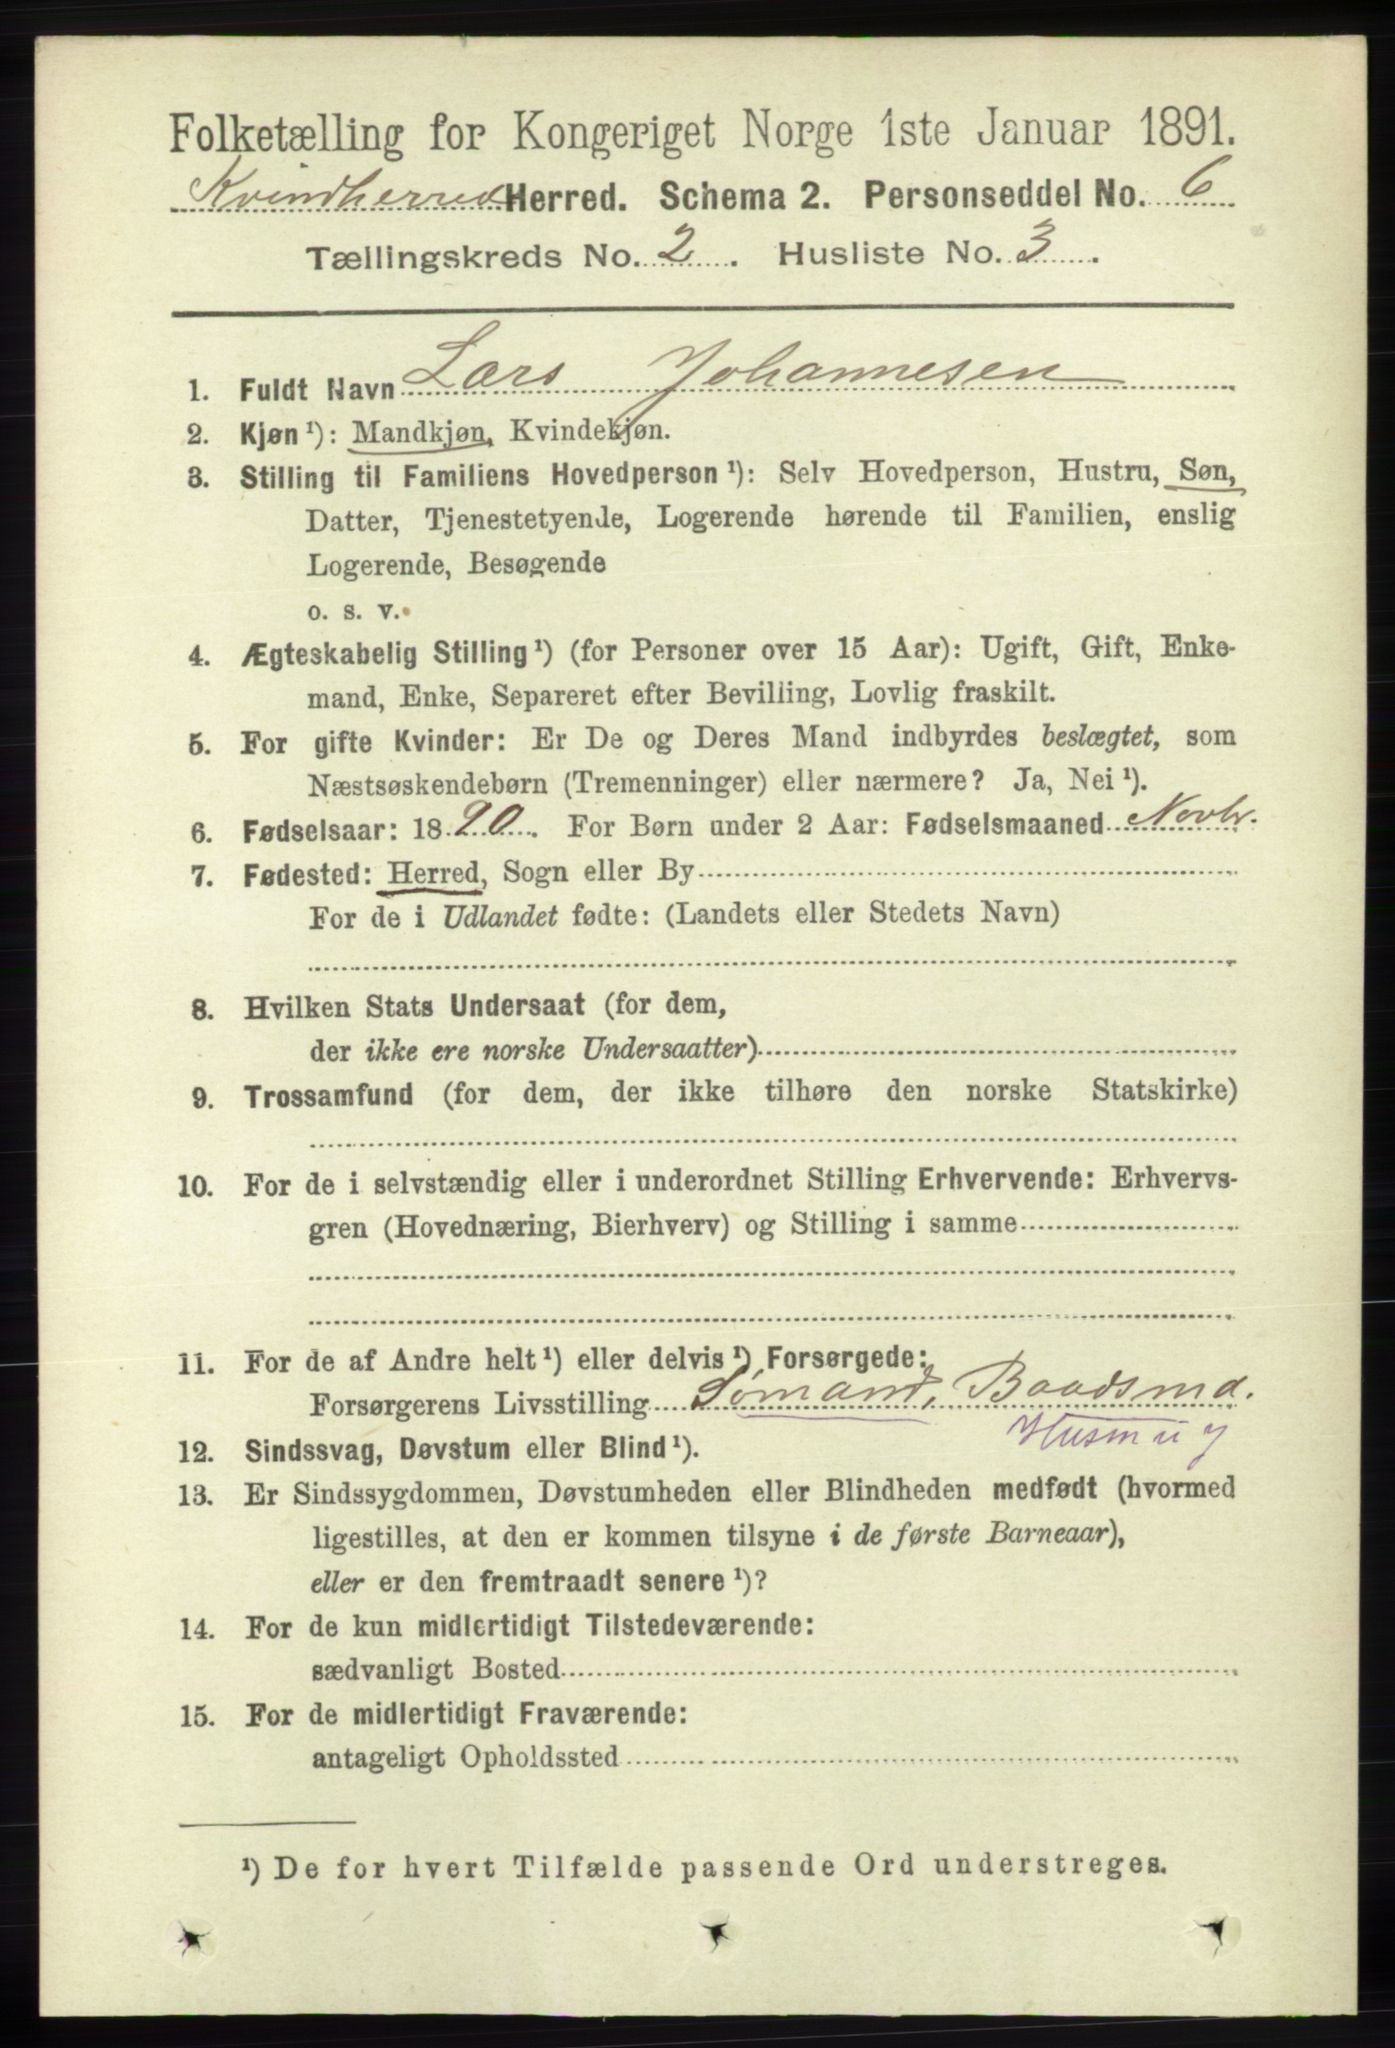 Folketælling for Kongeriget Norge 1ste Januar 1891.
Kvindherred Herred. Schema 2. Personseddel No. 6
Tællingskreds No. 2. Husliste No. 3.
1. Fuldt Navn Lars Johannesen
2. Kjøn¹): Mandkjøn, Kvindekjøn.
3. Stilling til Familiens Hovedperson¹): Selv Hovedperson, Hustru, Søn,
Datter, Tjenestetyende, Logerende hørende til Familien, enslig
Logerende, Besøgende
o. s. v.
4. Ægteskabelig Stilling¹) (for Personer over 15 Aar): Ugift, Gift, Enke-
mand, Enke, Separeret efter Bevilling, Lovlig fraskilt.
5. For gifte Kvinder: Er De og Deres Mand indbyrdes beslægtet, som
Næstsøskendebørn (Tremenninger) eller nærmere? Ja, Nei¹).
6. Fødselsaar: 1890. For Børn under 2 Aar: Fødselsmaaned Novbr.
7. Fødested: Herred, Sogn eller By
For de i Udlandet fødte: (Landets eller Stedets Navn)
8. Hvilken Stats Undersaat (for dem,
der ikke ere norske Undersaatter)
9. Trossamfund (for dem, der ikke tilhøre den norske Statskirke)
10. For de i selvstændig eller i underordnet Stilling Erhvervende: Erhvervs-
gren (Hovednæring, Bierhverv) og Stilling i samme
11. For de af Andre helt¹) eller delvis¹) Forsørgede:
Forsørgerens Livsstilling Sømand, Baadsmd.
Husm
12. Sindssvag, Døvstum eller Blind¹).
13. Er Sindssygdommen, Døvstumheden eller Blindheden medfødt (hvormed
ligestilles, at den er kommen tilsyne i de første Barneaar),
eller er den fremtraadt senere¹)?
14. For de kun midlertidigt Tilstedeværende:
sædvanligt Bosted
15. For de midlertidigt Fraværende:
antageligt Opholdssted
¹) De for hvert Tilfælde passende Ord understreges.